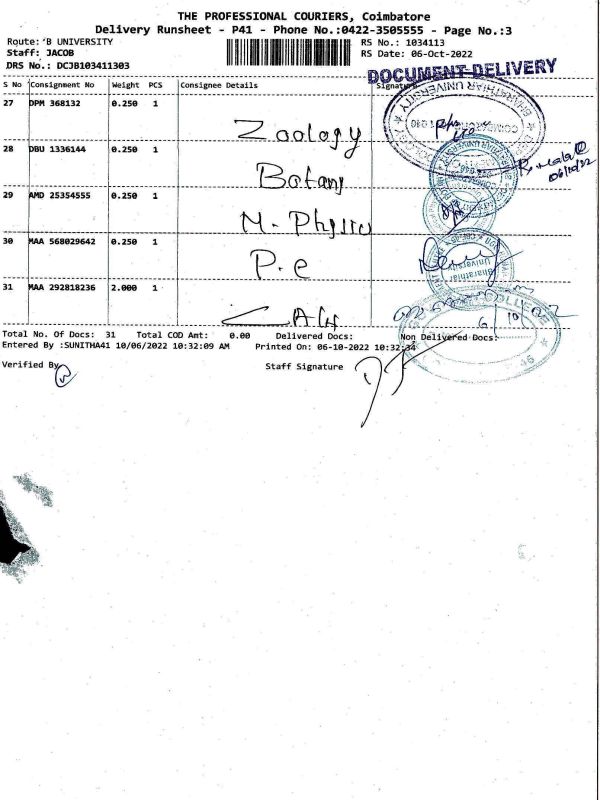 THE PROFESSIONAL COURIERS, Coimbatore
Delivery Runsheet - P41 - Phone No.:0422-3505555 - Page No.:3
Route: 'B UNIVERSITY RS No.: 1034113
Staff: JACOB RS Date: 06-Oct-2022
DRS No.: DCJB103411303
DOCUMENT DELIVERY
S No Consignment No Weight PCS Consignee Details Signature
27 DPM 368132 0.250 1
Zoology
28 DBU 1336144 0.250 1
Botany
29 AMD 25354555 0.250 1
M. Physics
30 MAA 568029642 0.250 1
P.e
31 MAA 292818236 2.000 1
Total No. Of Docs: 31 Total COD Amt: 0.00 Delivered Docs: Non Delivered Docs:
Entered By :SUNITHA41 10/06/2022 10:32:09 AM Printed On: 06-10-2022 10:32:34
Verified By Staff Signature